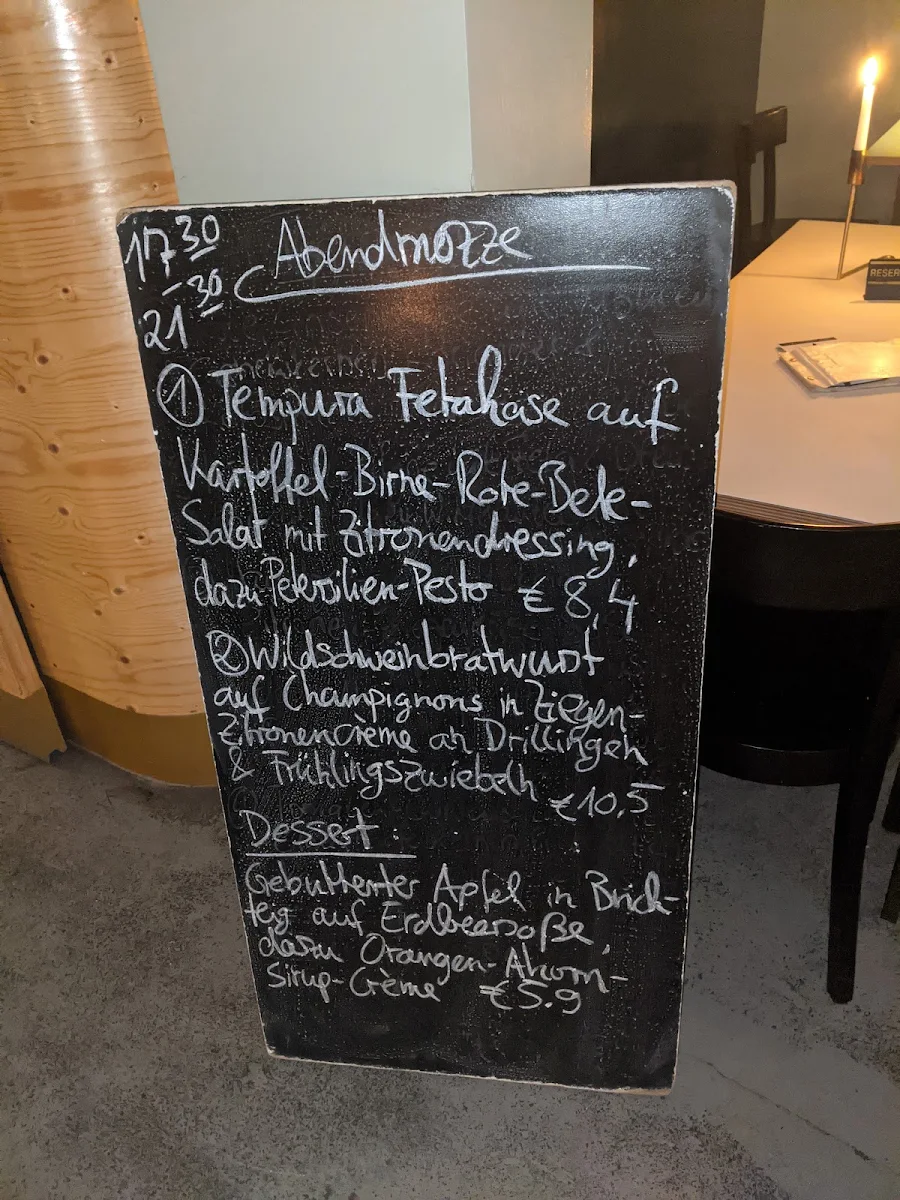 17³⁰
-
21³⁰
Abendmozze
① Tempura Fetakäse auf
Kartoffel-Birne-Rote-Bete-
Salat mit Zitronendressing,
dazu Petersilien-Pesto €8,4
② Wildschweinbratwurst
auf Champignons in Ziegen-
Zitronencrème an Drillingen
& Frühlingszwiebeln €10,5
Dessert:
Gebutterter Apfel in Brick-
teig auf Erdbeersoße,
dazu Orangen-Ahorn-
Sirup-Crème €5.9
RESER